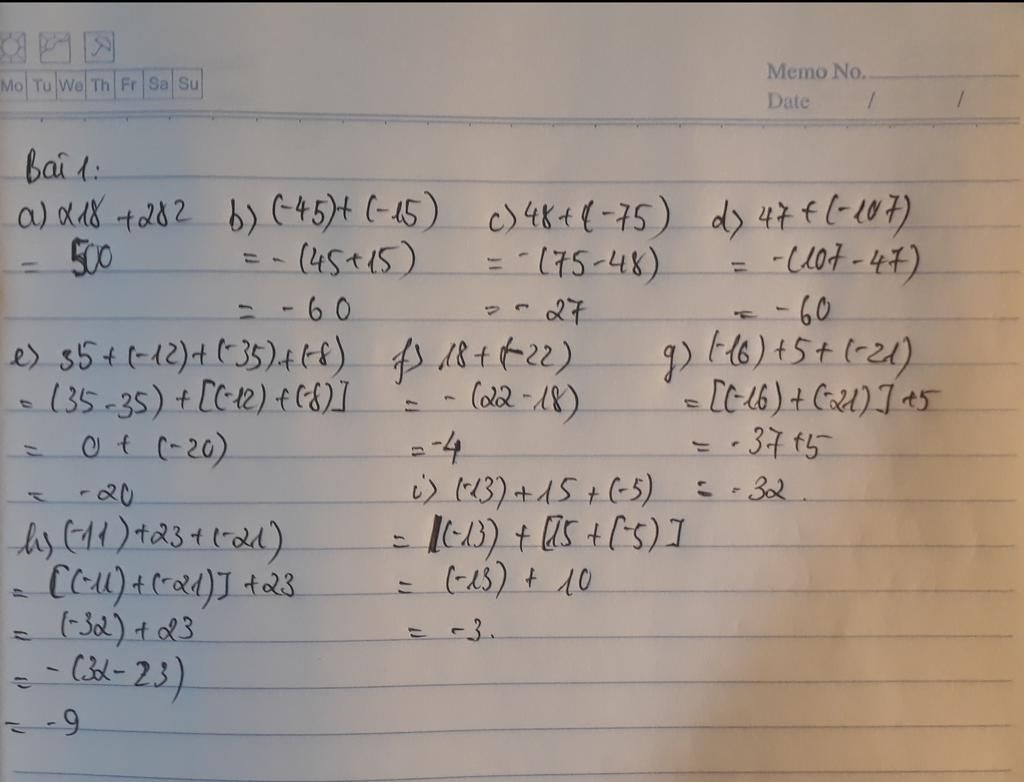 Mo Tu We Th Fr Sa Su
Memo No.
Date / /
Bài 1:
a) 218 + 282 b) (-45) + (-15) c) 48 + (-75) d) 47 + (-107)
= 500 = - (45 + 15) = - (75 - 48) = - (107 - 47)
= - 60 = - 27 = - 60
e) 35 + (-12) + (-35) + (-8) f) 18 + (-22) g) (-16) + 5 + (-21)
= (35 - 35) + [(-12) + (-8)] = - (22 - 18) = [(-16) + (-21)] + 5
= 0 + (-20) = -4 = - 37 + 5
= -20 i) (-13) + 15 + (-5) = - 32.
h) (-11) + 23 + (-21) = (-13) + [15 + (-5)]
= [(-11) + (-21)] + 23 = (-13) + 10
= (-32) + 23 = -3.
= - (32 - 23)
= -9